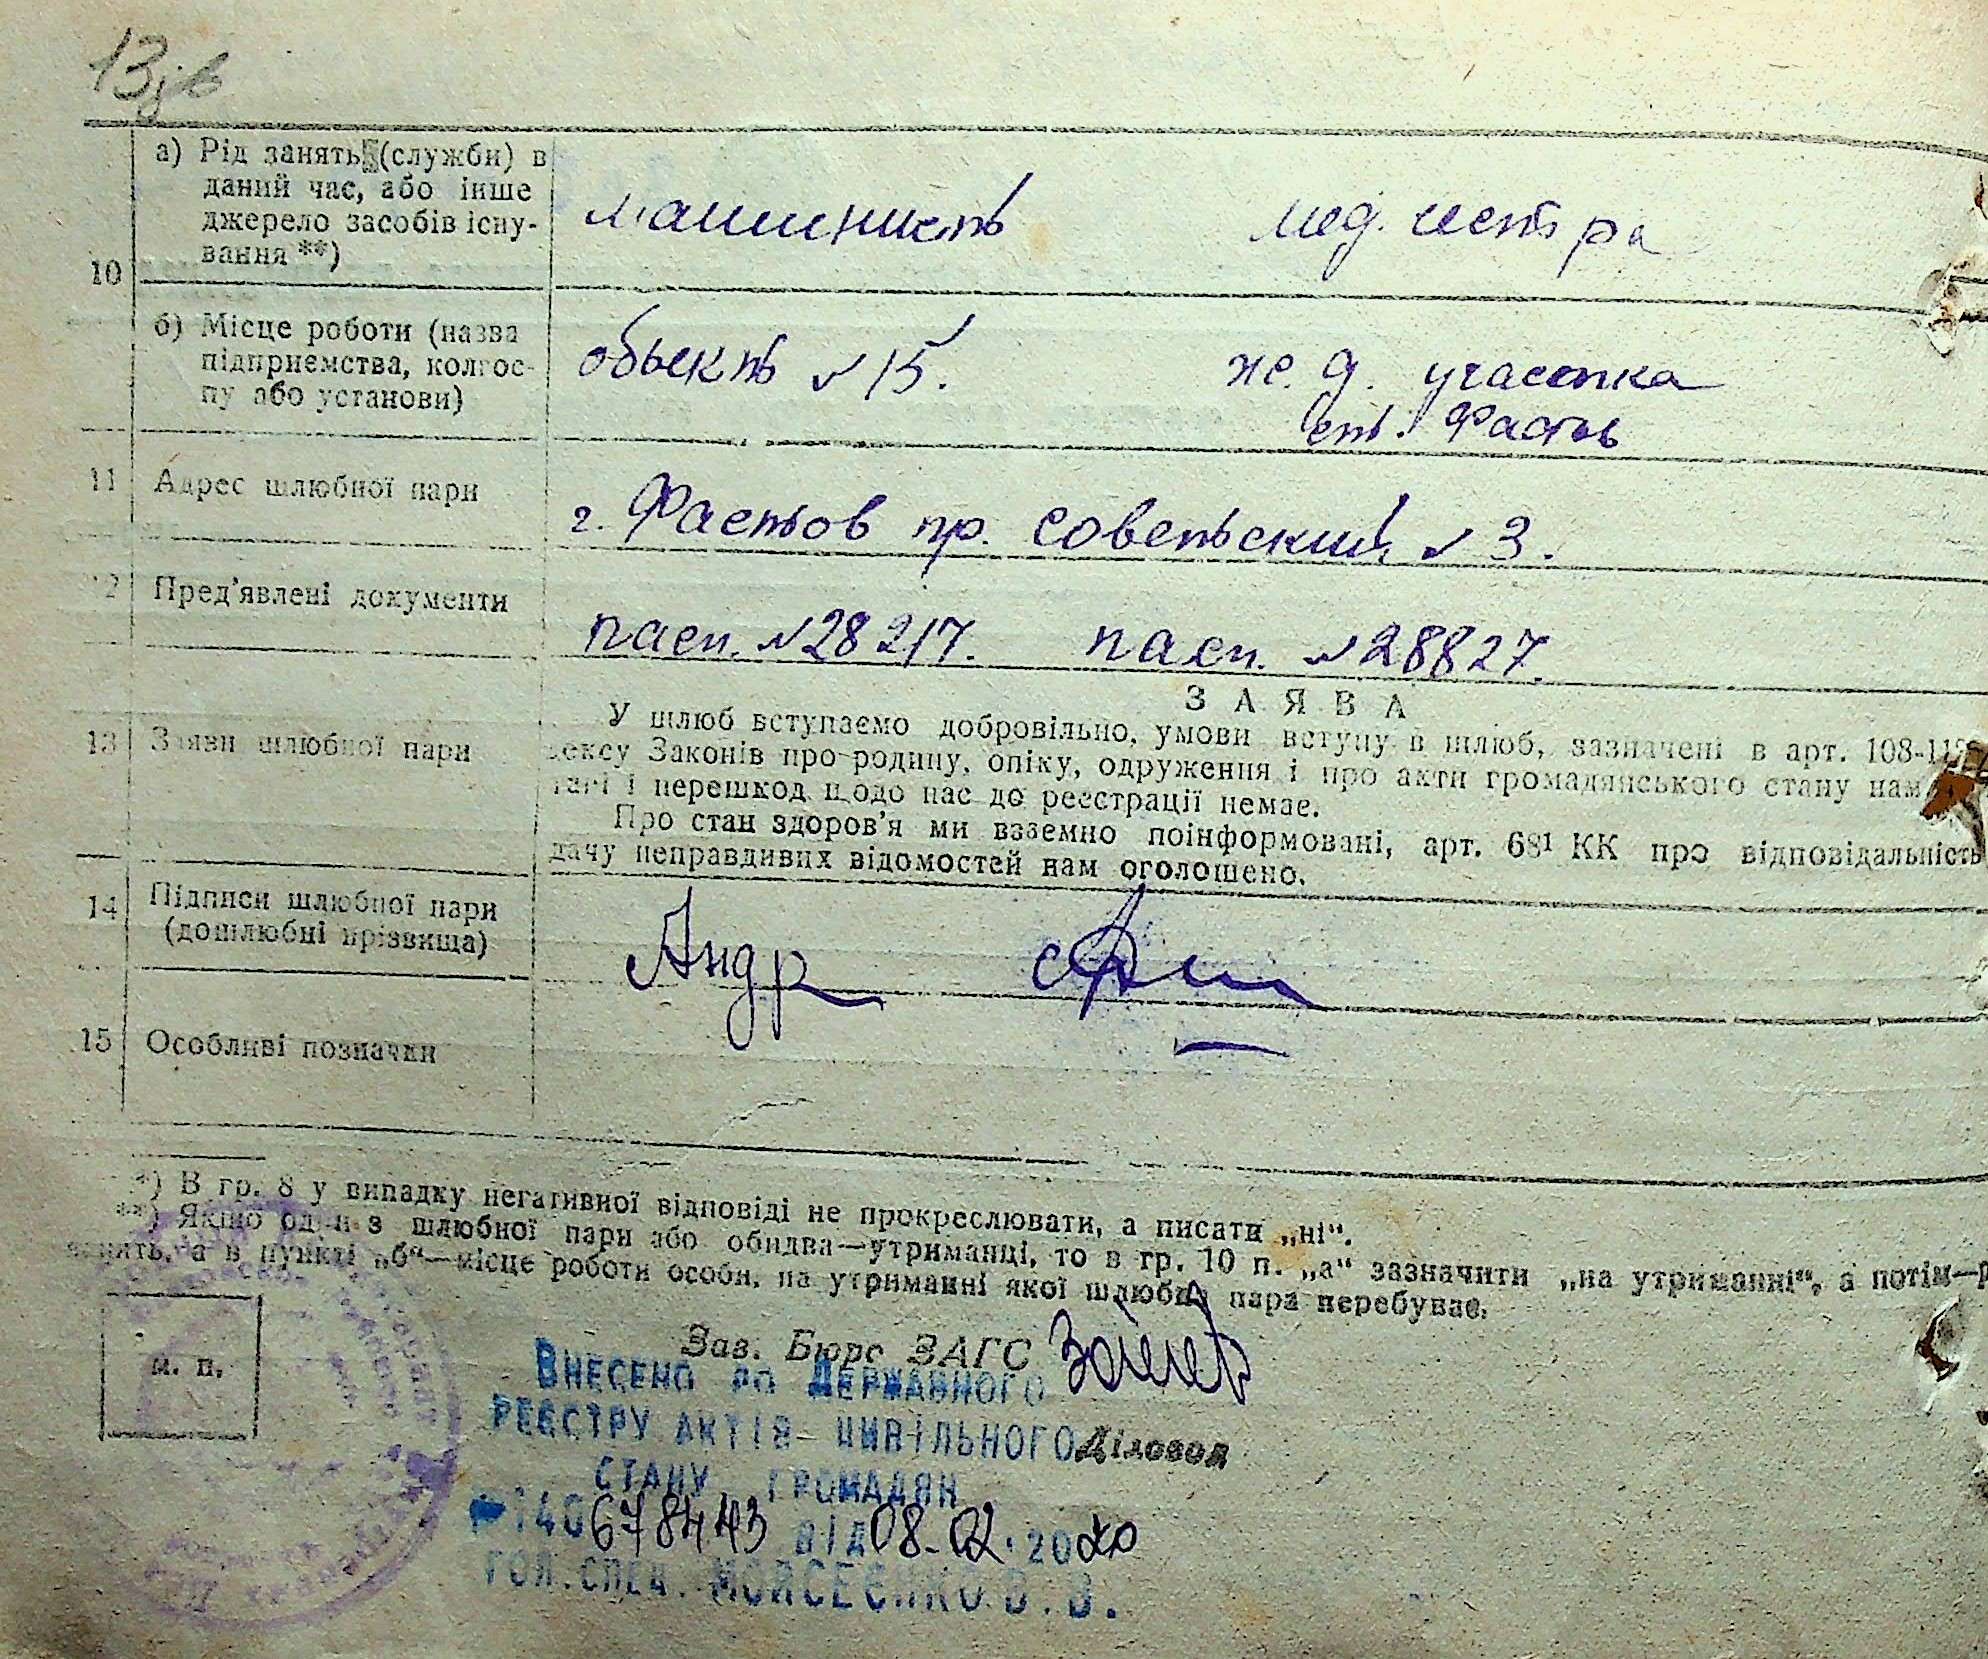 13зв
а) Рід занять (служби) в
даний час, або інше
джерело засобів існу-
вання **)
машинист мед. сестра
10
б) Місце роботи (назва
підприємства, колгос-
пу або установи)
обьект №15. ж. д. участка
ст. Фастов
11 Адрес шлюбної пари
г. Фастов пр. Советьский №3.
12 Пред'явлені документи
пасп. №28217. пасп. №28827.
13 Заяви шлюбної пари
ЗАЯВА
У шлюб вступаємо добровільно, умови вступу в шлюб, зазначені в арт. 108-11
ексу Законів про родину, опіку, одруження і про акти громадянського стану нам
тані і перешкод щодо нас до реєстрації немає.
Про стан здоров'я ми взаємно поінформовані, арт. 68¹ КК про відповідальність
дачу неправдивих відомостей нам оголошено.
14 Підписи шлюбної пари
(дошлюбні прізвища)
Андр
15 Особливі позначки
*) В гр. 8 у випадку негативної відповіді не прокреслювати, а писати „ні“.
**) Якщо один з шлюбної пари або обидва—утриманці, то в гр. 10 п. „а“ зазначити „на утриманні“, а потім—р
анять, а в пункті „б“—місце роботи особи, на утриманні якої шлюбна пара перебуває.
м. п.
Зав. Бюро ЗАГС
Внесено до Державного
реєстру актів цивільного
Діловод
стану громадян
140678443 від 08.02.2020
гол. спец. Мойсеєнко В. В.